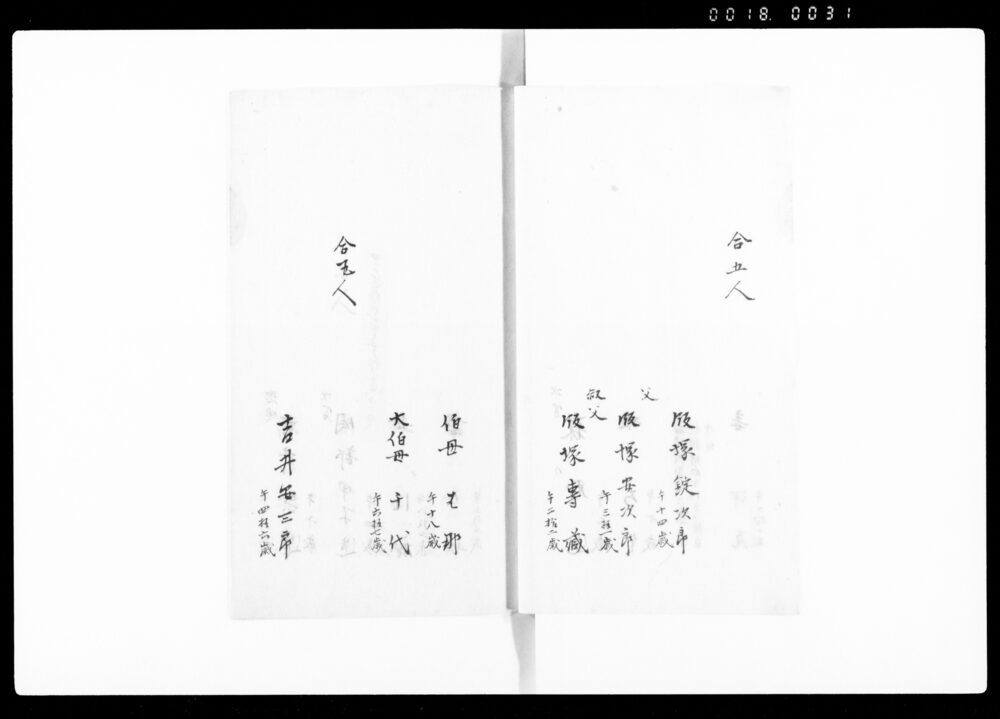 0018.0031
合五人
飯塚錠次郎
午十四歳
父
飯塚安次郎
午三拾一歳
叔父
飯塚専蔵
午二拾二歳
伯母
午十八歳
大伯母 千代
午六拾七歳
合五人
吉井安三郎
午四拾六歳